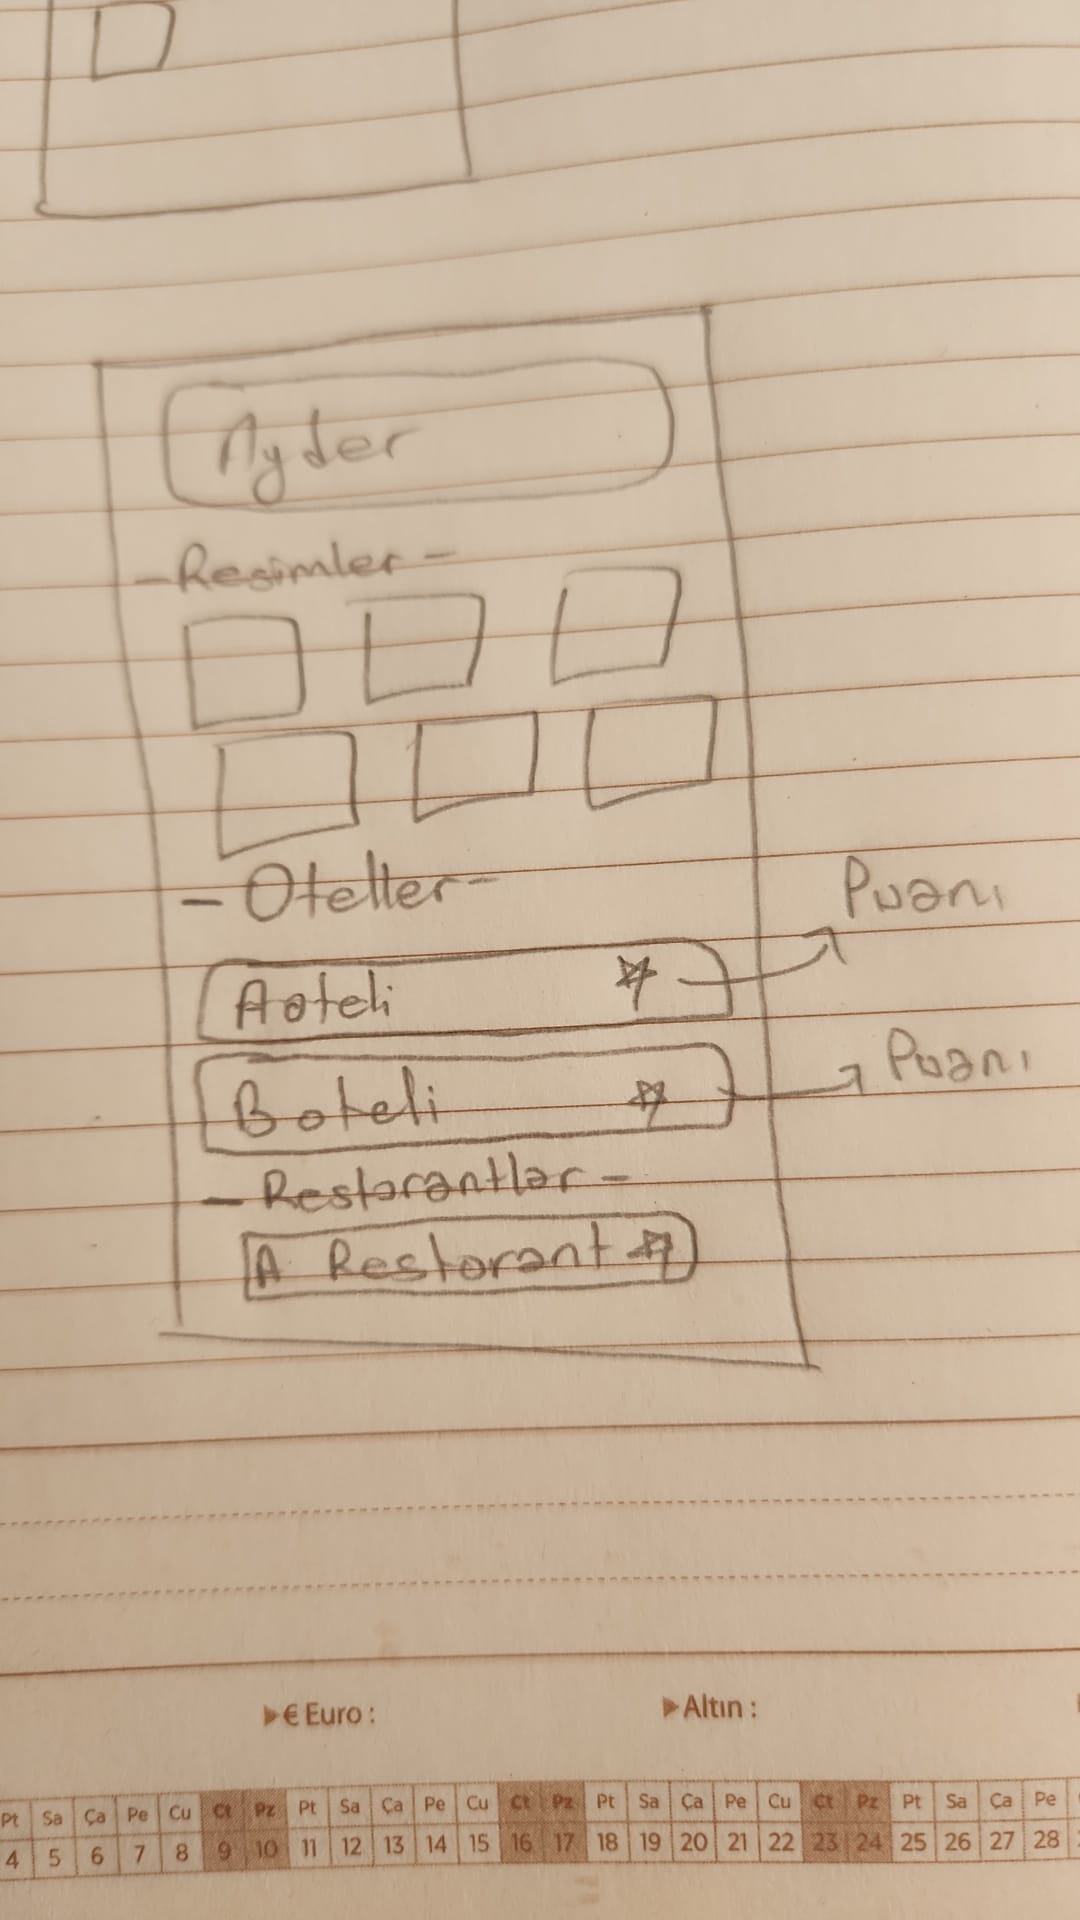 Ayder
- Resimler -
- Oteller -
Puanı
A oteli
Puanı
B oteli
- Restorantlar -
A Restorant
€ Euro :
Altın :
Pt Sa Ça Pe Cu Ct Pz Pt Sa Ça Pe Cu Ct Pz Pt Sa Ça Pe Cu Ct Pz Pt Sa Ça Pe
4 5 6 7 8 9 10 11 12 13 14 15 16 17 18 19 20 21 22 23 24 25 26 27 28